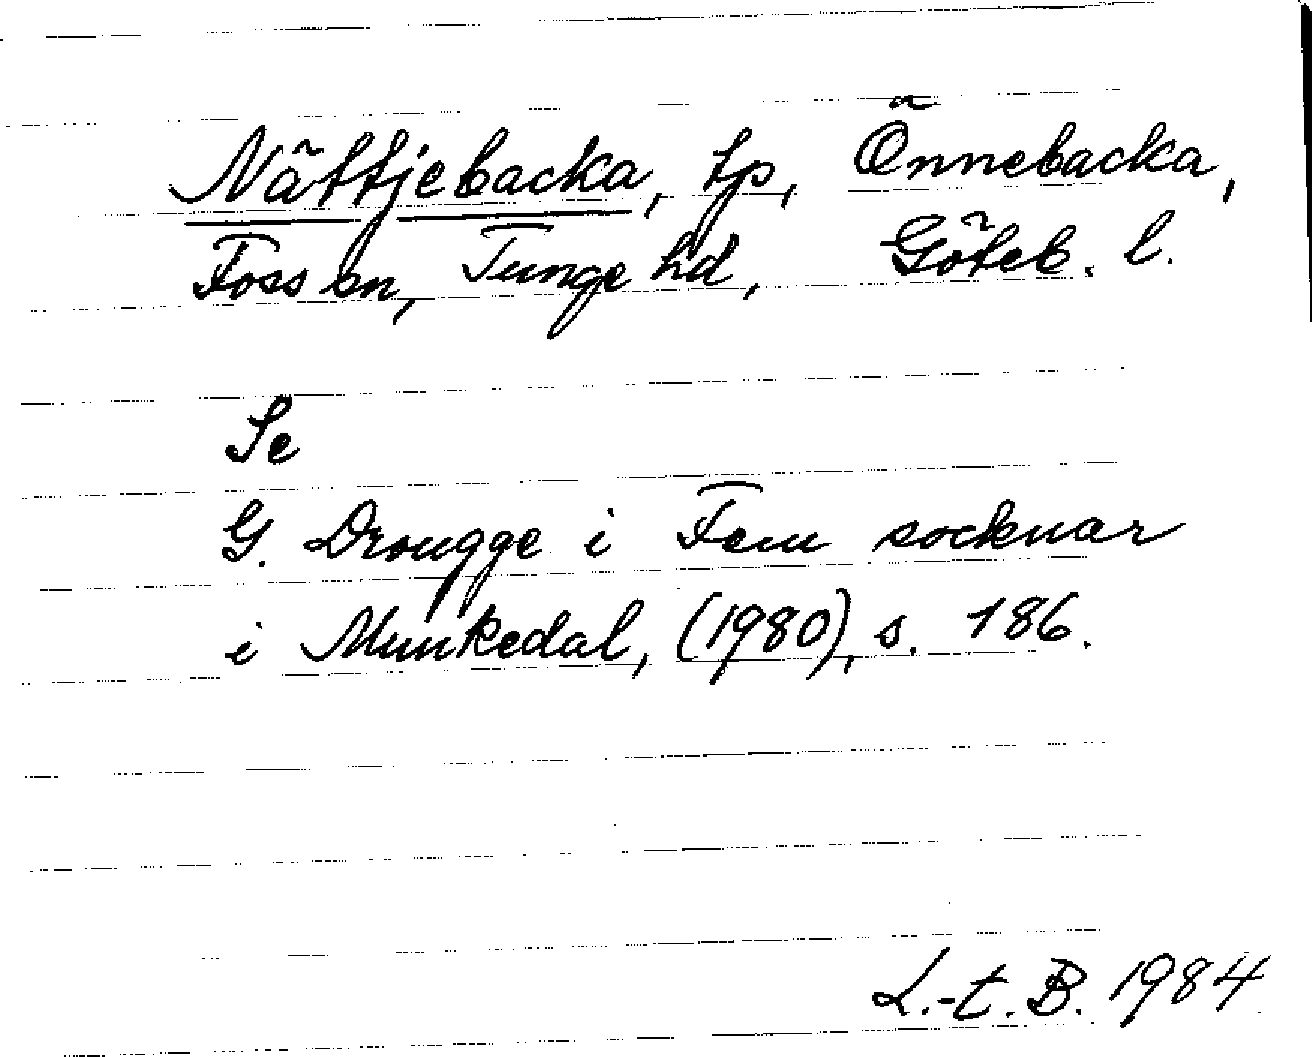 Nättjebacka, tp, Önnebacka,
Foss sn, Tunge hd, Göteb. l.
Se
G. Drougge i Fem socknar
i Munkedal, (1980), s. 186.
L.-t. B. 1984